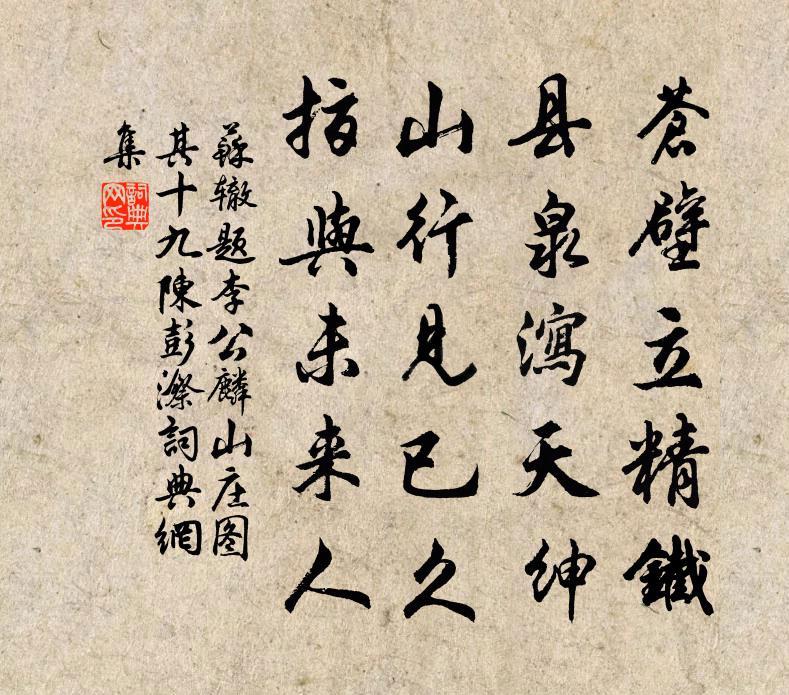 蒼壁立精鐵
县泉瀉天紳
山行見已久
指與未来人
蘇辙题李公麟山庄图
其十九陳彭漈詞典網
集
詞典网印